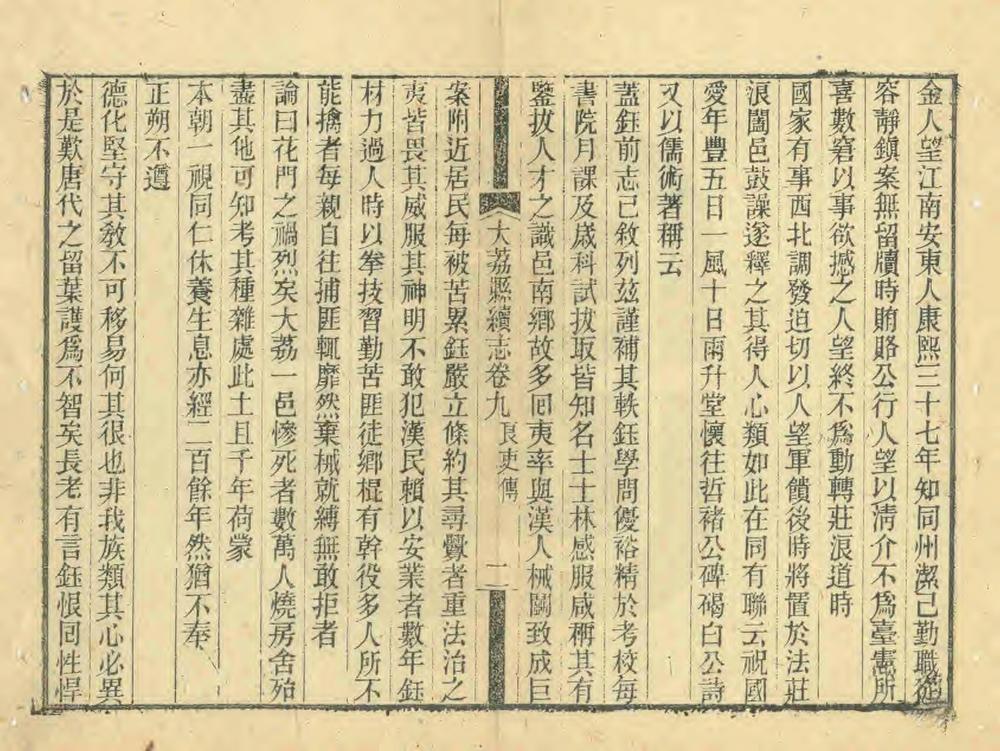 金人望江南安東人康熙三十七年知同州潔己勤職從
容靜鎮案無留牘時賄賂公行人望以清介不為臺憲所
喜數窘以事欲撼之人望終不為動轉莊浪道時
國家有事西北調發迫切以人望軍饋後時將置於法莊
浪闔邑鼓譟遂釋之其得人心類如此在同有聯云祝國
愛年豐五日一風十日雨升堂懷往哲褚公碑碣白公詩
又以儒術著稱云
蓋鈺前志已敘列茲謹補其軼鈺學問優裕精於考校每
書院月課及歲科試拔取皆知名士士林感服咸稱其有
鑒拔人才之識邑南鄉故多回夷率與漢人械鬭致成巨
大荔縣續志卷九 良吏傳 二
案附近居民每被苦累鈺嚴立條約其尋釁者重法治之
夷皆畏其威服其神明不敢犯漢民賴以安業者數年鈺
材力過人時以拳技習勤苦匪徒鄉棍有幹役多人所不
能擒者每親自往捕匪輒靡然棄械就縛無敢拒者
論曰花門之禍烈矣大荔一邑慘死者數萬人燒房舍殆
盡其他可知考其種雜處此土且千年荷蒙
本朝一視同仁休養生息亦經二百餘年然猶不奉
正朔不遵
德化堅守其教不可移易何其很也非我族類其心必異
於是歎唐代之留葉護為不智矣長老有言鈺恨回性悍